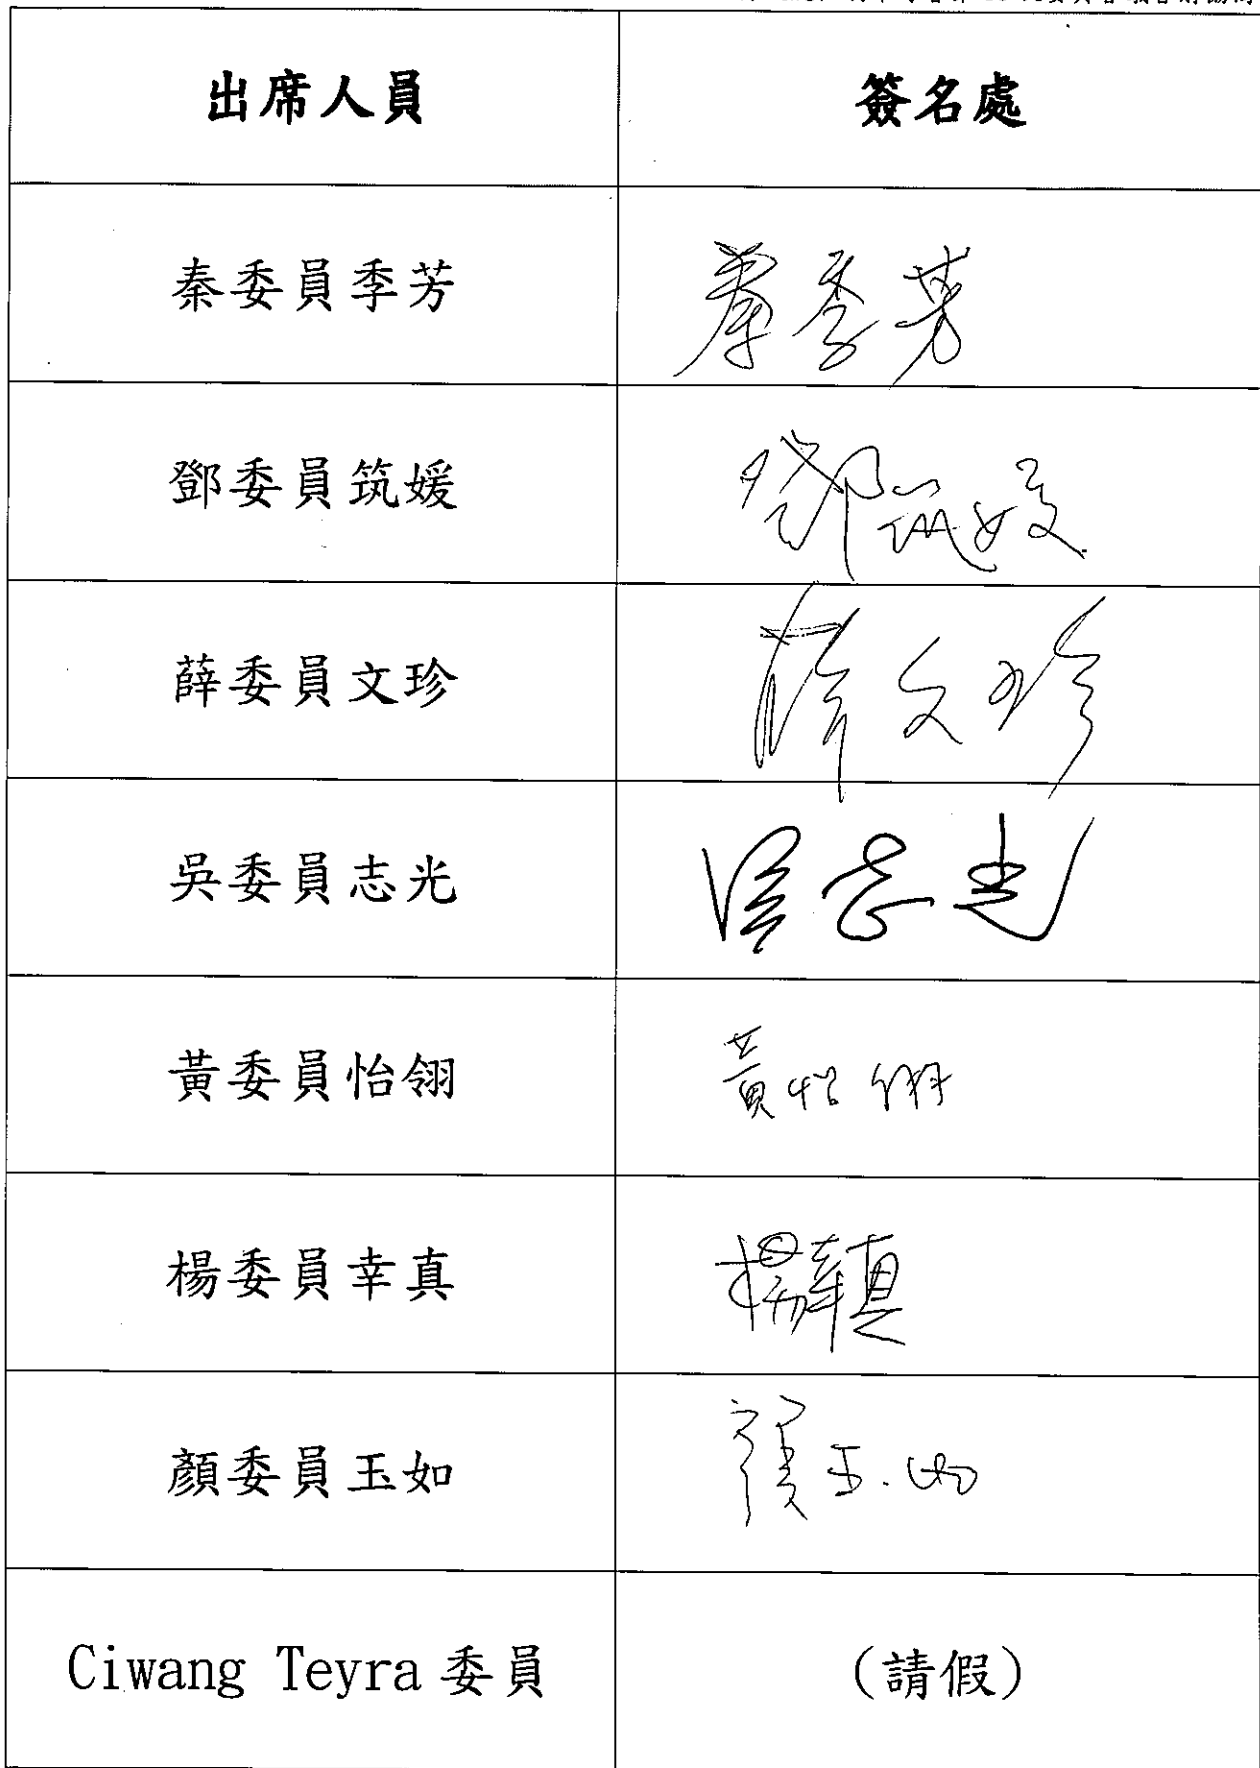 出席人員 簽名處
秦委員季芳 秦季芳
鄧委員筑媛 鄧筑媛
薛委員文珍 薛文珍
吳委員志光 吳志光
黃委員怡翎 黃怡翎
楊委員幸真 楊幸真
顏委員玉如 顏玉如
Ciwang Teyra 委員 (請假)